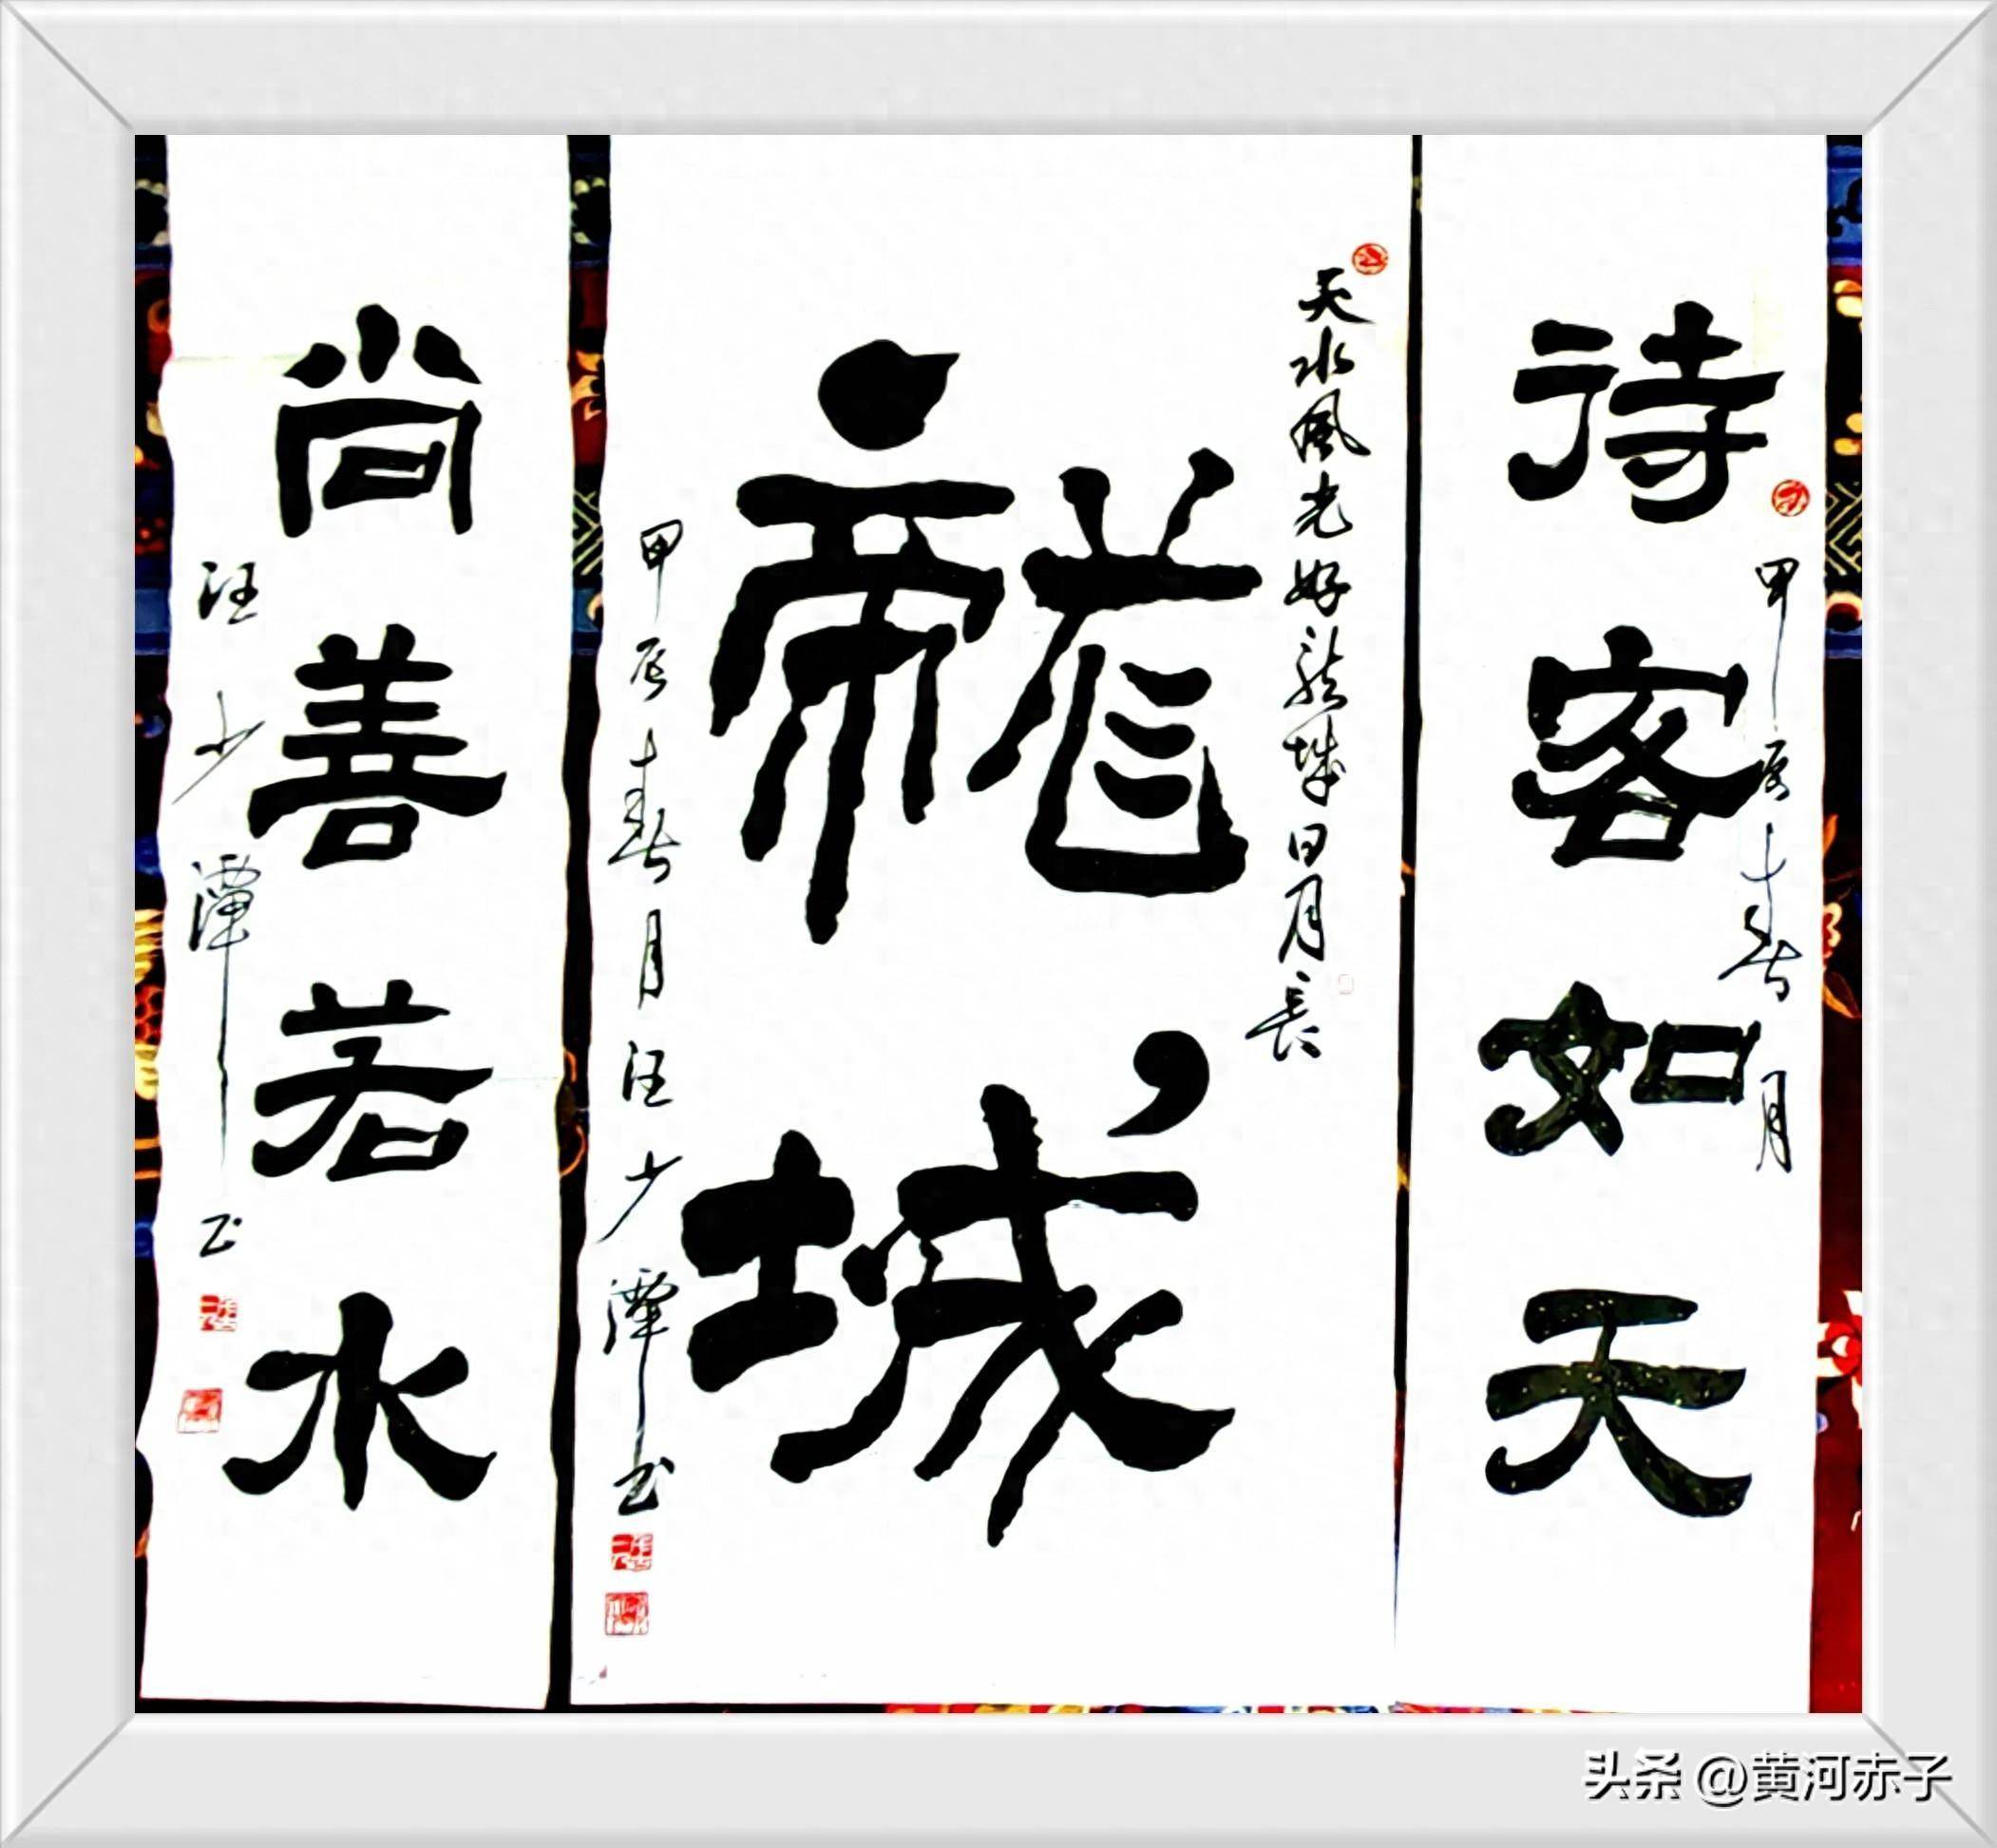 甲辰春月
待客如天
天水風光好龙城日月長
龍城
甲辰春月汪少潭书
尚善若水
汪少潭书
头条 @黄河赤子